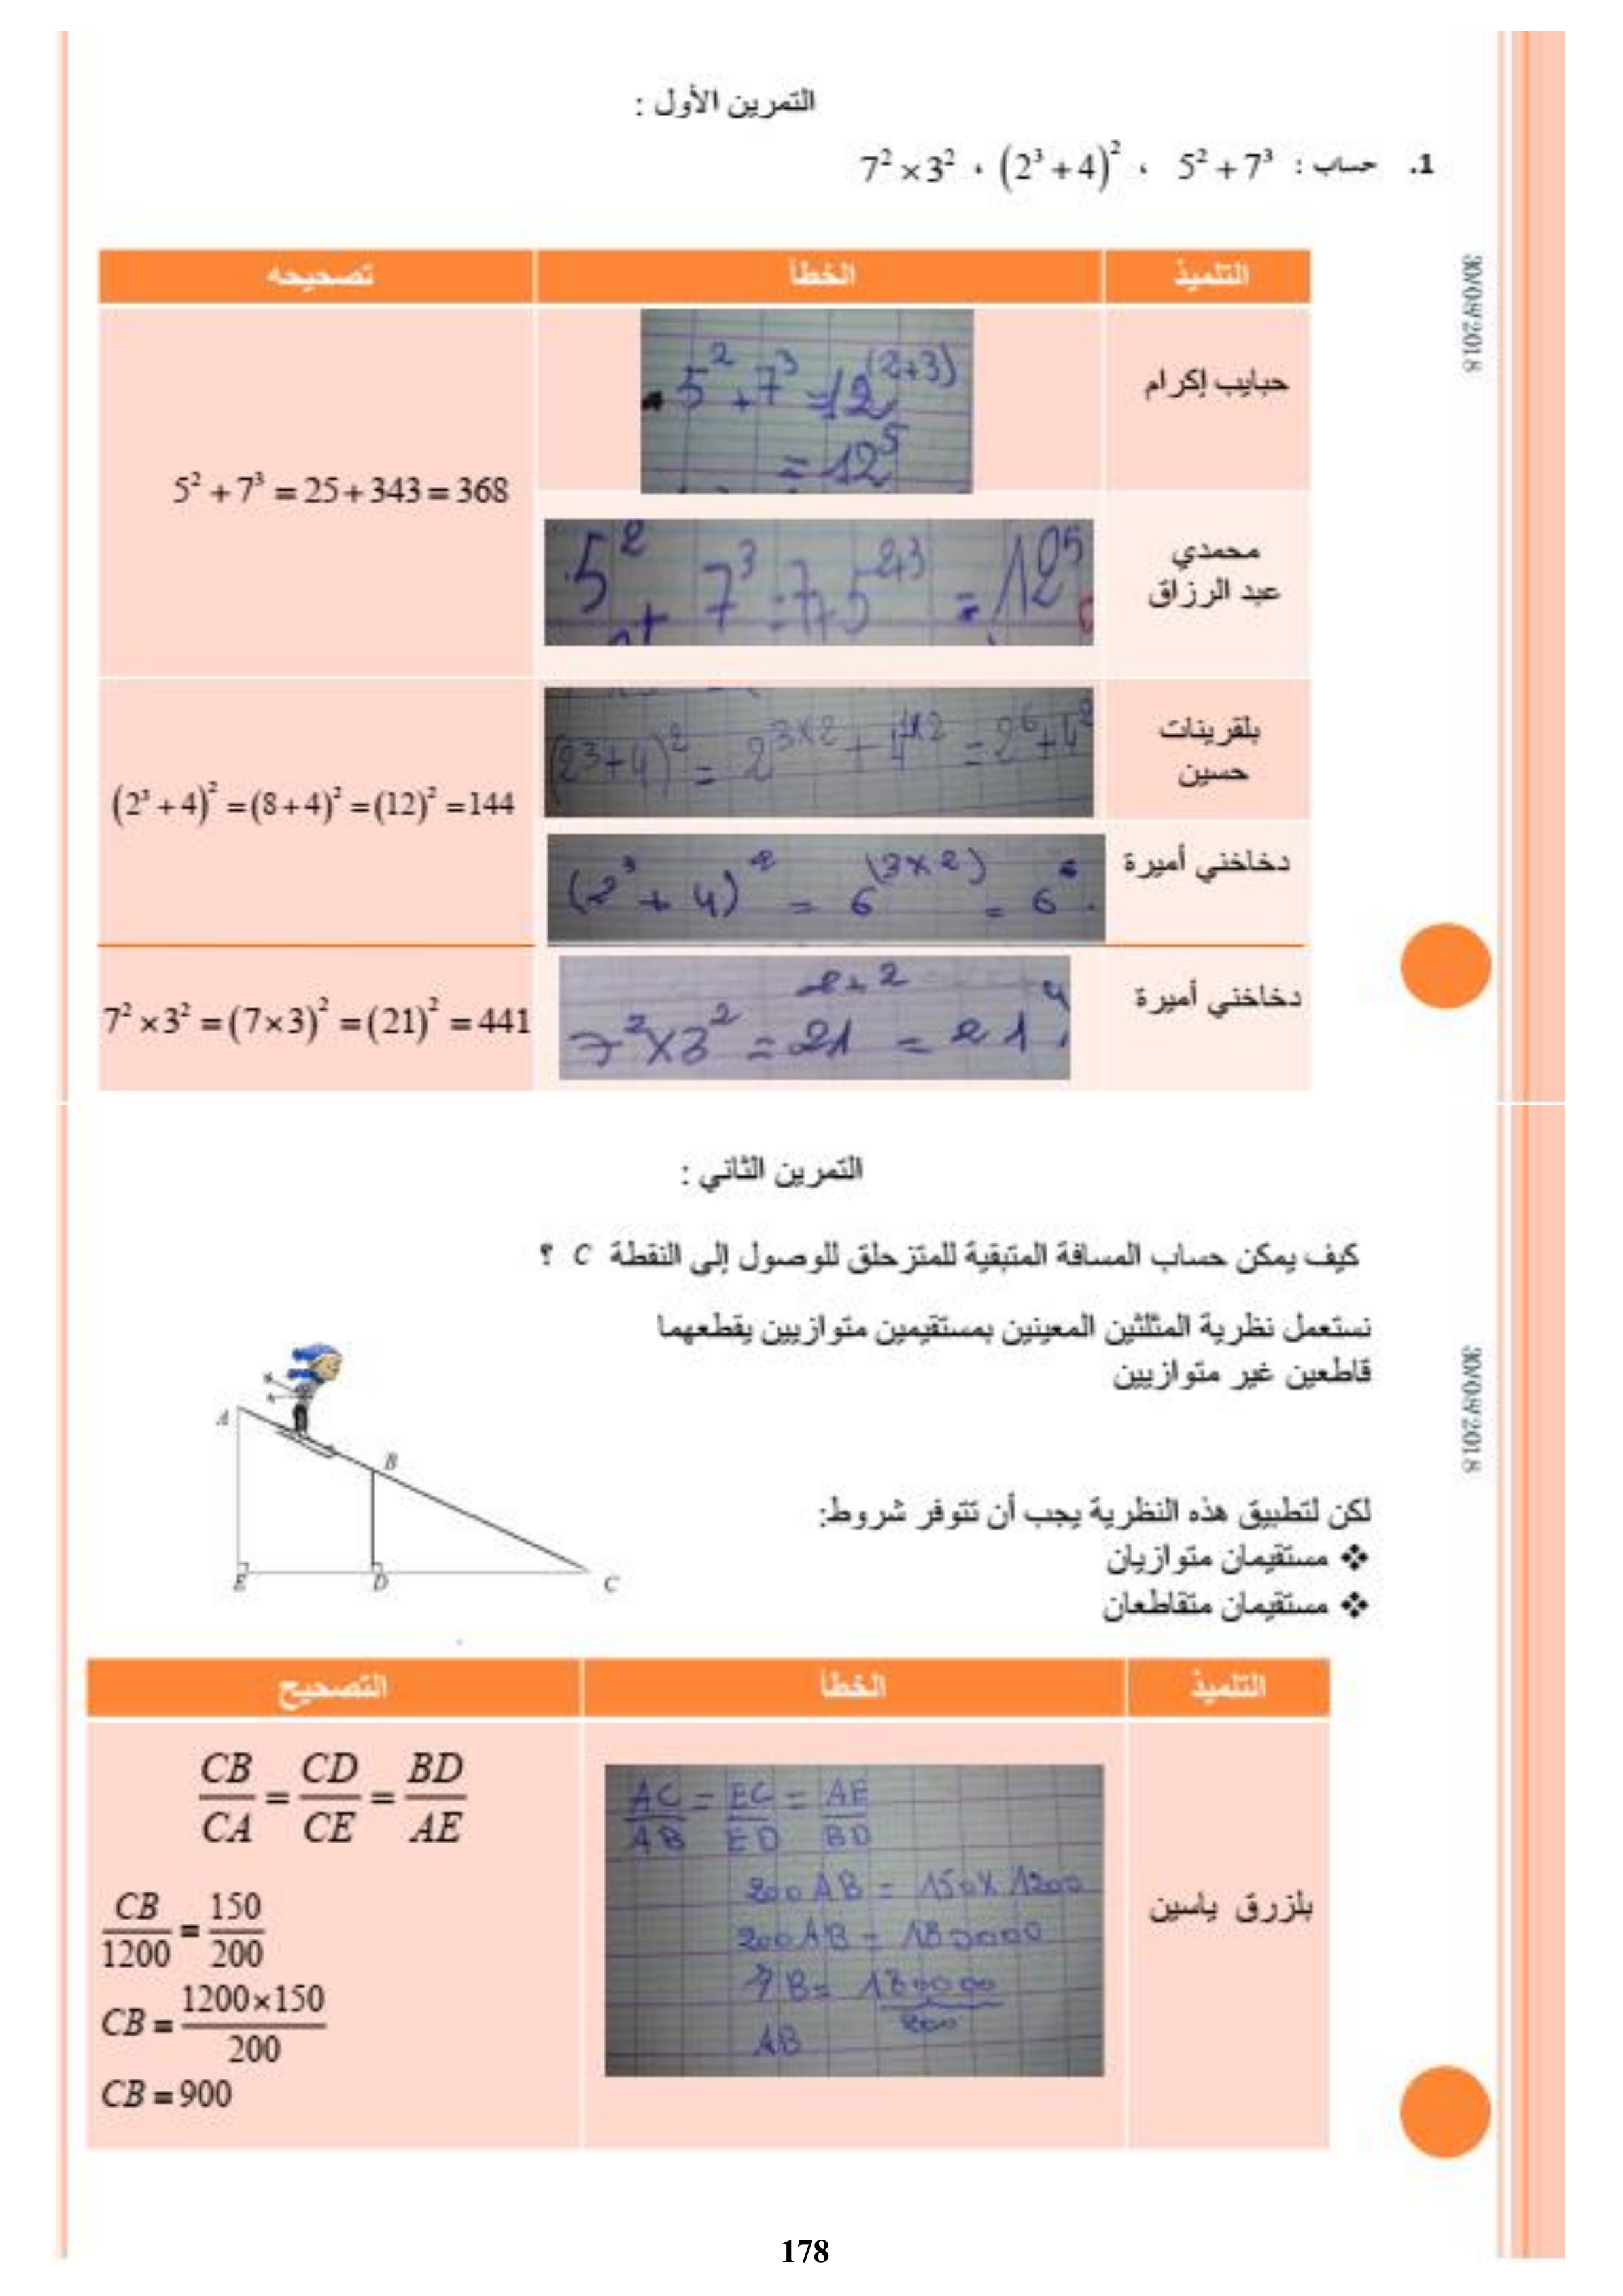 التمرين الأول :
1. حساب : 5² + 7³ ، (2³ + 4)² ، 7² × 3²
30/08/2018
التلميذ الخطأ تصحيحه
حبايب إكرام
5² + 7³ = 12^(2+3)
= 12⁵
5² + 7³ = 25 + 343 = 368
محمدي
عبد الرزاق
5² + 7³ = 7+5^2+3 = 12⁵
بلقرينات
حسين
(2³+4)² = 2^3×2 + 4^1×2 = 2⁶+4²
(2³ + 4)² = (8 + 4)² = (12)² = 144
دخاخني أميرة
(2³ + 4)² = 6^(3×2) = 6⁶
دخاخني أميرة
7²×3² = 21^2+2 = 21⁴
7² × 3² = (7×3)² = (21)² = 441
التمرين الثاني :
كيف يمكن حساب المسافة المتبقية للمتزحلق للوصول إلى النقطة C ؟
نستعمل نظرية المثلثين المعينين بمستقيمين متوازيين يقطعهما
قاطعين غير متوازيين
30/08/2018
A
B
E
D
C
لكن لتطبيق هذه النظرية يجب أن تتوفر شروط:
❖ مستقيمان متوازيان
❖ مستقيمان متقاطعان
التلميذ الخطأ التصحيح
بلزرق ياسين
AC/AB = EC/ED = AE/BD
200 AB = 150 × 1200
200 AB = 180000
AB = 180000/200
AB
CB/CA = CD/CE = BD/AE
CB/1200 = 150/200
CB = 1200×150/200
CB = 900
178